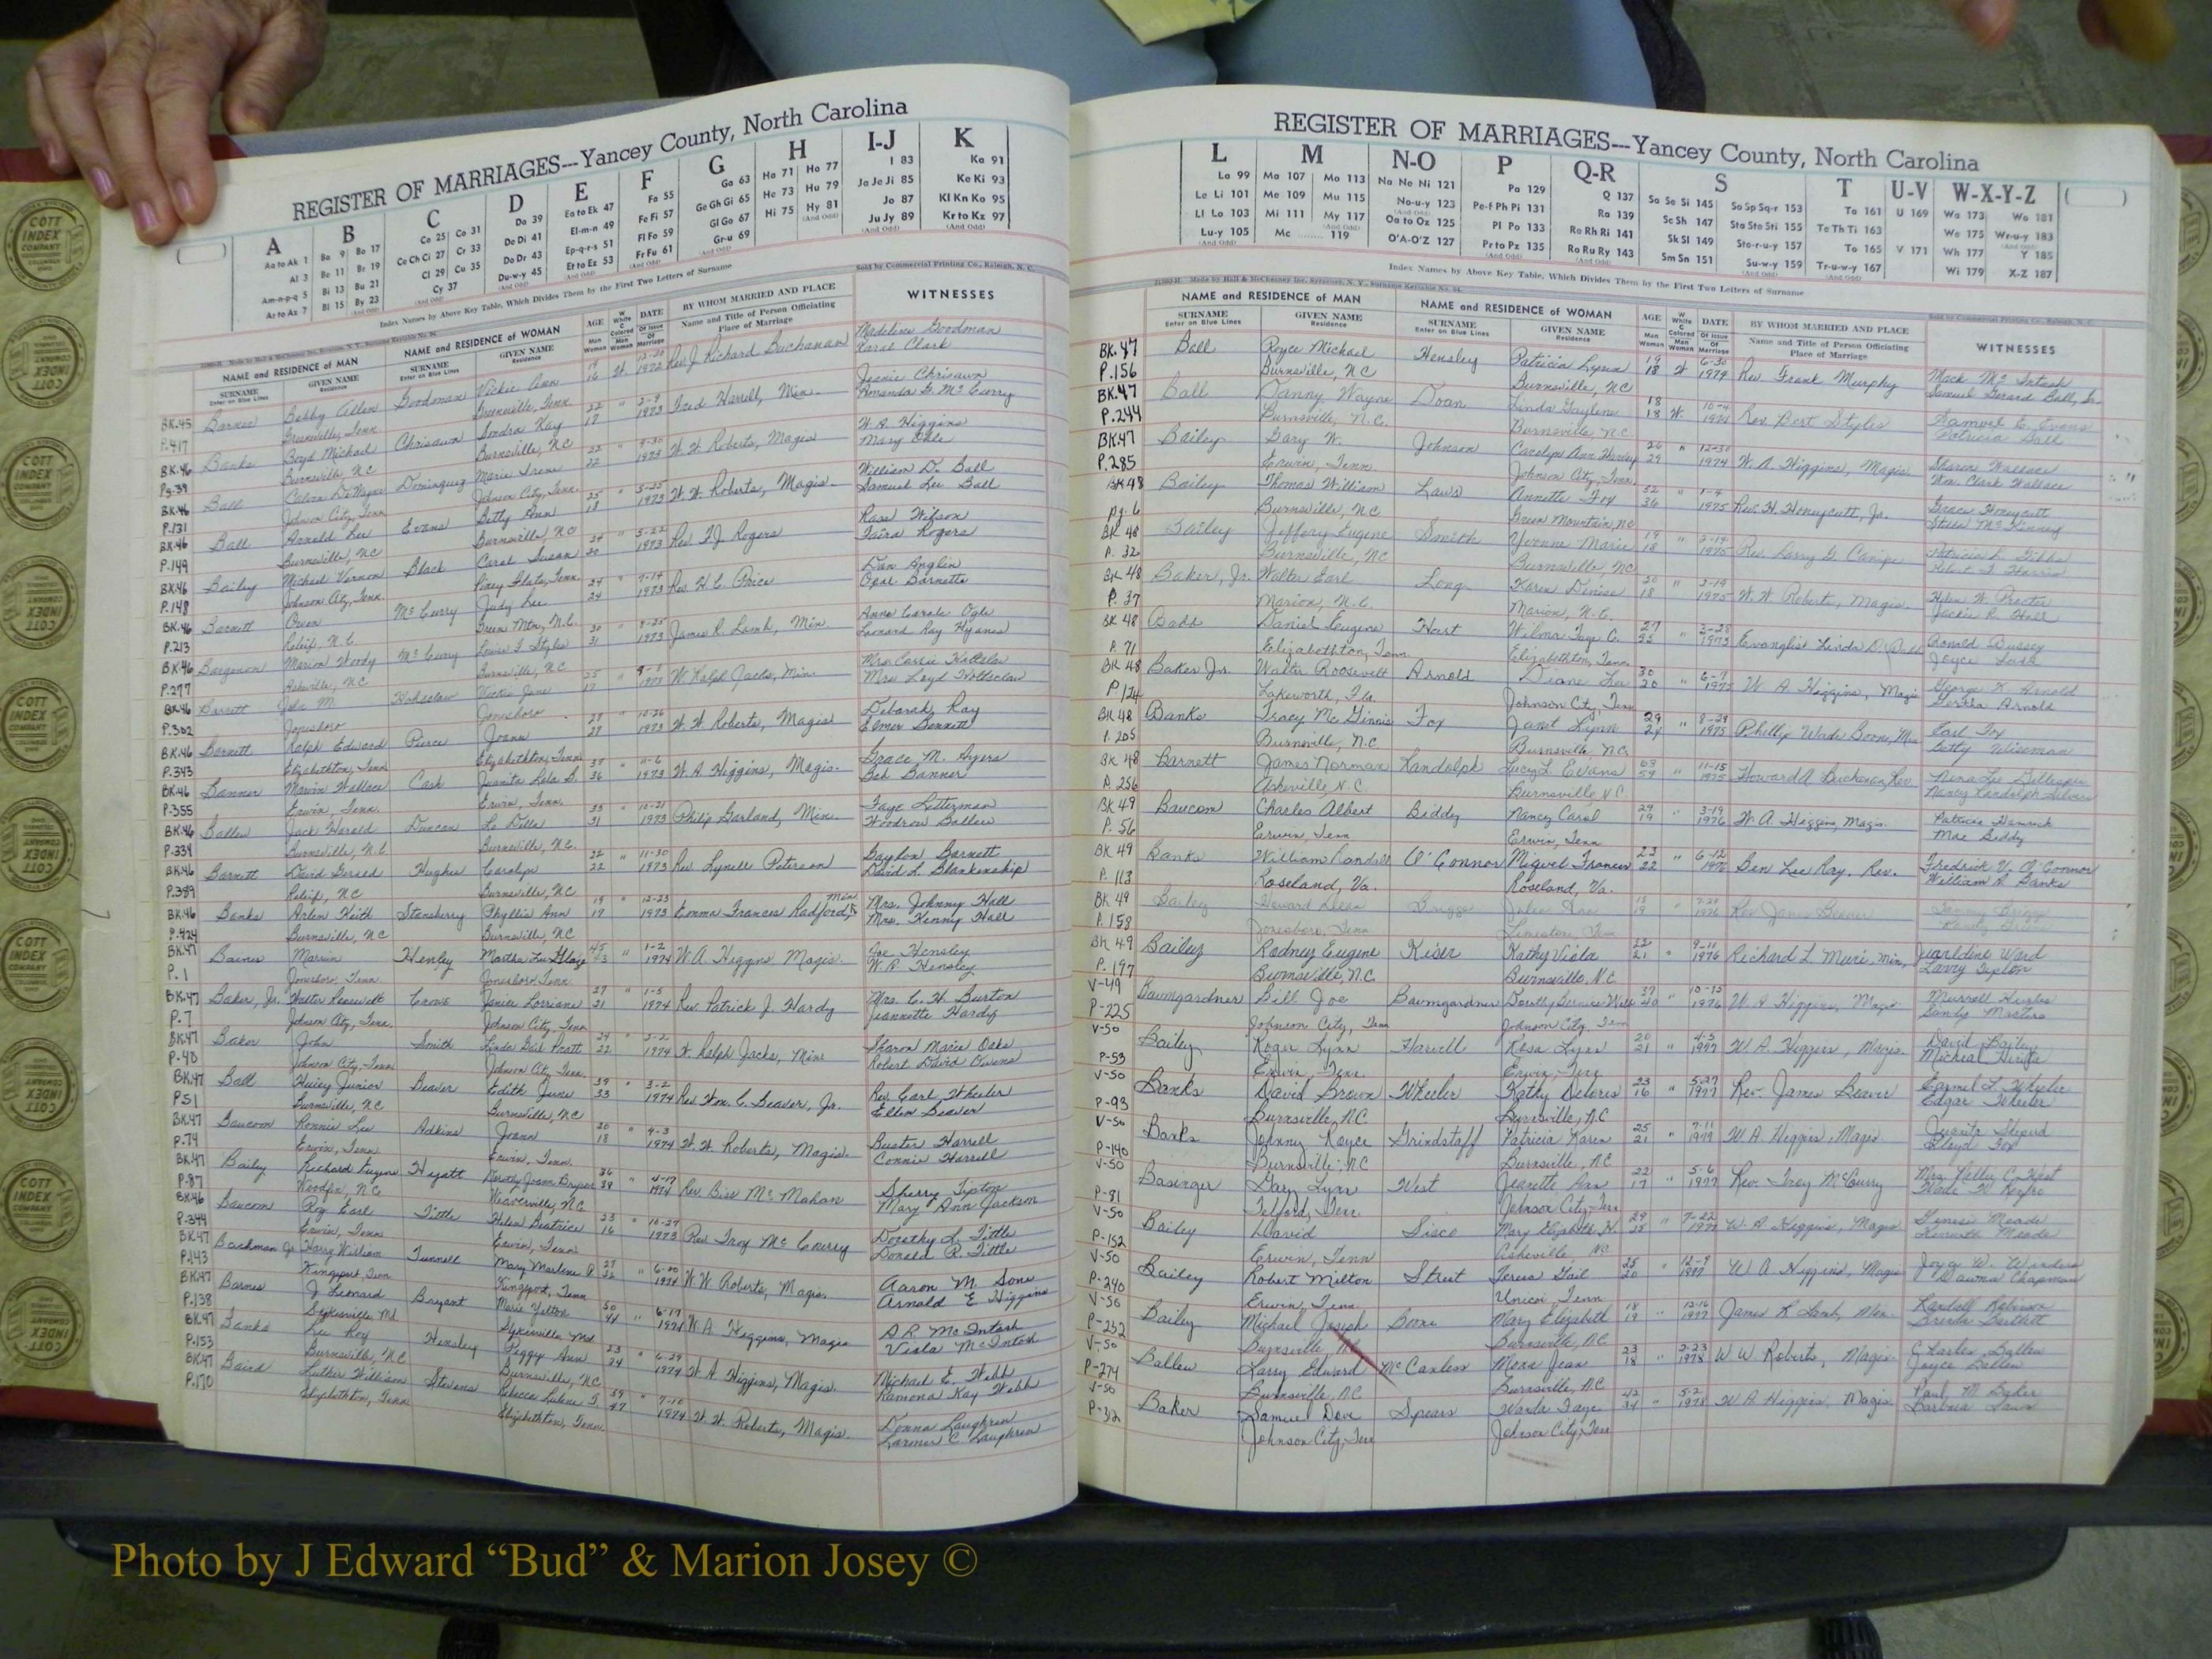 REGISTER OF MARRIAGES---Yancey County, North Carolina
A B C D E F G H I-J K
Aa to Ak 1 Ba 9 Bo 17 Ca 25 Co 31 Da 39 Ea to Ek 47 Fa 55 Ga 63 Ha 71 Ho 77 I 83 Ka 91
Al 3 Be 11 Br 19 Ce Ch Ci 27 Cr 33 De Di 41 El-m-n 49 Fe Fi 57 Ge Gh Gi 65 He 73 Hu 79 Ja Je Ji 85 Ke Ki 93
Am-n-p-q 5 Bi 13 Bu 21 Cl 29 Cu 35 Do Dr 43 Ep-q-r-s 51 Fl Fo 59 Gl Go 67 Hi 75 Hy 81 Jo 87 Kl Kn Ko 95
Ar to Az 7 Bl 15 By 23 Cy 37 Du-w-y 45 Et to Ez 53 Fr Fu 61 Gr-u 69 Ju Jy 89 Kr to Kz 97
Index Names by Above Key Table, Which Divides Them by the First Two Letters of Surname
Sold by Commercial Printing Co., Raleigh, N. C.
NAME and RESIDENCE of MAN NAME and RESIDENCE of WOMAN AGE DATE BY WHOM MARRIED AND PLACE WITNESSES
SURNAME GIVEN NAME SURNAME GIVEN NAME Name and Title of Person Officiating
Enter on Blue Lines Residence Enter on Blue Lines Residence Place of Marriage
BK.45 Barnes Bobby Allen Goodman Vickie Ann 16 W. 1972 Rev. J. Richard Buchanan Madeline Goodman
P.417 Greeneville, Tenn. Greeneville, Tenn. Carol Clark
BK.46 Banks Boyd Michael Chrisawn Sondra Kay 22 17 " 2-9 1973 Fred Harrell, Min. Jeanie Chrisawn
Pg.39 Burnsville, NC Burnsville, NC Amanda G. McCurry
BK.46 Ball Calvin DeWayne Dominguez Marie Irene 22 22 " 1973 W. W. Roberts, Magis W. A. Higgins
P.131 Johnson City, Tenn Johnson City, Tenn.
BK.46 Ball Arnold Lee Evans Betty Ann 25 18 " 5-25 1973 W. W. Roberts, Magis. William D. Ball
P.149 Burnsville, NC Burnsville NC Samuel Lee Ball
BK.46 Bailey Michael Vernon Black Carol Susan " 5-22 1973 Rev. F J Rogers Ross Wilson
P.148 Johnson City, Tenn. Piney Flats, Tenn. Faira Rogers
BK.46 Barnett Owen McCurry Judy Lee 24 24 " 7-14 1973 Rev. H. C. Price Dan Anglin
P.213 Relief, N.C. Green Mtn, N.C. Opal Barnette
BK.46 Marion Woody McCurry Louise F. Styles 30 31 " 1973 James R. Lamb, Min. Anna Carole Ogle
P.277 Asheville, NC Burnsville, NC Leonard Ray Hyams
BK.46 Barrett John M. Vickie Jane 25 17 " 1973 W. Ralph Jacks, Min.
P.302 Jonesboro Jonesboro
BK.46 Barnett Ralph Edward Pierce Joann 27 27 " 10-26 1973 W. W. Roberts, Magis Deborah Ray
P.343 Elizabethton, Tenn Elizabethton, Tenn Elmer Bennett
BK.46 Banner Marvin Wallace Cash Juanita Lola G. 36 " 11-6 1973 W. A. Higgins, Magis. Grace M. Ayers
P.355 Erwin, Tenn. Erwin, Tenn. Bob Banner
BK.46 Ballew Jack Harold Duncan La Della 35 31 " 10-21 1973 Philip Garland, Min. Faye Letterman
P.334 Burnsville, N.C Burnsville, N.C. Woodrow Ballew
BK.46 Barnett David Gerald Hughes Carolyn 22 22 " 11-30 1973 Rev. Lynell Peterson Gaylon Barnett
P.389 Relief, NC Burnsville, NC David L. Blankenship
BK.46 Banks Arlen Keith Stansberry Phyllis Ann 19 17 " 12-23 1973 Emma Frances Radford, Min. Mrs. Johnny Hall
P.424 Burnsville, NC Burnsville, NC Mrs. Kenny Hall
BK.47 Baines Marvin Henley " 1-2 1974 W. A. Higgins, Magis. Joe Hensley
P.1 Jonesboro, Tenn. Jonesboro Tenn W. R. Hensley
BK.47 Baker, Jr. Walter Roosevelt Crowe Janice Lorriane 27 21 " 1-5 1974 Rev. Patrick J. Hardy Mrs. C. H. Burton
P.7 Johnson City, Tenn. Johnson City, Tenn Jeannette Hardy
BK.47 Baker John Smith Linda Gail Pratt 24 22 " 2-2 1974 W. Ralph Jacks, Min Sharon Marie Oaks
P-40 Johnson City, Tenn Johnson City, Tenn. Robert David Owens
BK.47 Ball Huiey Junior Deaver Edith June 39 33 " 3-2 1974 Rev. Wm. C. Deaver, Jr. Rev. Carl Wheeler
P51 Burnsville, NC Burnsville, NC Ellen Deaver
BK.47 Baucom Ronnie Lee Adkins Joann 20 18 " 4-3 1974 W. W. Roberts, Magis. Buster Harrell
P.74 Erwin, Tenn Erwin, Tenn. Connie Harrell
BK.47 Bailey Richard Eugene Hyatt Dorothy Joann Bryson 36 38 " 4-17 1974 Rev. Bill McMahan Sherry Tipton
P.87 Woodfin, NC Weaverville, NC Mary Ann Jackson
BK.46 Baucom Roy Earl Tittle Helen Beatrice 23 16 " 10-27 1973 Rev. Troy McCurry Dorothy L. Tittle
P.344 Erwin, Tenn Erwin, Tenn Donald R. Tittle
BK.47 Bachman Jr Harry William Tunnell Mary Marlene P. " 6-20 1974 W. W. Roberts, Magis. Aaron M. Sons
P.143 Kingsport, Tenn Kingsport, Tenn Arnold E Higgins
BK.47 Barnes J. Leonard Bryant Marie Yelton 50 44 " 6-17 1974 W. A. Higgins, Magis D. R. McIntosh
P.138 Sykesville, Md. Sykesville, Md Viola McIntosh
BK.47 Banks Lee Roy Hensley Peggy Ann 23 24 " 6-29 1974 W. A. Higgins, Magis. Michael E. Webb
P.153 Burnsville, NC Burnsville, NC Ramona Kay Webb
BK.47 Baird Luther William Stevens 59 47 " 7-10 1974 W. W. Roberts, Magis. Donna Laughren
P.170 Elizabethton, Tenn Elizabethton, Tenn. Larmer C. Laughren
REGISTER OF MARRIAGES---Yancey County, North Carolina
L M N-O P Q-R S T U-V W-X-Y-Z
La 99 Ma 107 Mo 113 Na Ne Ni 121 Pa 129 Q 137 Sa Se Si 145 So Sp Sq-r 153 Ta 161 U 169 Wa 173 Wo 181
Le Li 101 Me 109 Mu 115 No-u-y 123 Pe-f Ph Pi 131 Ra 139 Sc Sh 147 Sta Ste Sti 155 Te Th Ti 163 We 175 Wr-u-y 183
Ll Lo 103 Mi 111 My 117 Oa to Oz 125 Pl Po 133 Re Rh Ri 141 Sk Sl 149 Sto-r-u-y 157 To 165 V 171 Wh 177 Y 185
Lu-y 105 Mc 119 O'A-O'Z 127 Pr to Pz 135 Ro Ru Ry 143 Sm Sn 151 Su-w-y 159 Tr-u-w-y 167 Wi 179 X-Z 187
Index Names by Above Key Table, Which Divides Them by the First Two Letters of Surname
NAME and RESIDENCE of MAN NAME and RESIDENCE of WOMAN AGE DATE BY WHOM MARRIED AND PLACE WITNESSES
SURNAME GIVEN NAME SURNAME GIVEN NAME Name and Title of Person Officiating
Enter on Blue Lines Residence Enter on Blue Lines Residence Place of Marriage
BK.47 Ball Royce Michael Hensley Patricia Lynn 19 18 W 6-30 1974 Rev. Frank Murphy Mack McIntosh
P.156 Burnsville, NC Burnsville, NC Samuel Gerard Ball, Sr.
BK.47 Ball Danny Wayne Doan Linda Gaylene 18 18 W. 10-4 1974 Rev. Bert Styles Samuel E. Evans
P.244 Burnsville, N.C. Burnsville, N.C. Patricia Ball
BK47 Bailey Gary W. Johnson Carolyn Ann Harvey 26 29 " 12-30 1974 W. A. Higgins, Magis. Sharon Wallace
P.285 Erwin, Tenn. Johnson City, Tenn Wm. Clark Wallace
BK48 Bailey Thomas William Laws Annette Fox 52 36 " 1-4 1975 Rev. H. Honeycutt, Jr. Grace Honeycutt
pg.6 Burnsville, NC Green Mountain, NC Stella McKinney
BK 48 Bailey Jeffery Eugene Smith Yvonne Marie 19 18 " 2-14 1975 Rev. Larry G. Canipe Patricia L. Gibbs
P. 32 Burnsville, NC Burnsville, NC Robert F. Harris
BK 48 Baker, Jr. Walter Earl Long Karen Denise 20 18 " 2-19 1975 W. W. Roberts, Magis. Helen W. Proctor
P. 37 Marion, N.C. Marion, N.C. Jackie R. Hall
BK 48 Babb Daniel Eugene Hart Wilma Faye C. 27 " 1975 Evangelist Linda D. Ronald Bussey
P. 71 Elizabethton, Tenn Elizabethton, Tenn. Joyce
BK 48 Baker Jr. Walter Roosevelt Arnold Diane Lee 30 20 " 6-7 1975 W A Higgins, Magis George K Arnold
P 124 Lakeworth, Fla. Johnson City, Tenn Bertha Arnold
BK 48 Banks Tracy McGinnis Fox Janet Lynn 29 24 " 8-29 1975 Phillip Wade Boone, Min Earl Fox
P. 205 Burnsville, N.C. Burnsville NC Betty Wiseman
BK 48 Barnett James Norman Randolph Lucy L. Evans 63 59 " 11-15 1975 Howard A Buchanan, Rev Nina Lee Gillespie
P. 256 Asheville N.C. Burnsville N.C. Nancy Randolph Silvers
BK 49 Baucom Charles Albert Biddy Nancy Carol 24 19 " 3-19 1976 W. A. Higgins, Magis. Patricia Hamrick
P. 56 Erwin, Tenn Erwin, Tenn Mae Biddy
BK 49 Banks William Randall O'Connor Miguel Frances 23 22 " 6-12 1976 Ben Lee Ray, Rev. Fredrick V. O'Connor
P. 113 Roseland, Va. Roseland, Va. William R. Banks
BK 49 Bailey Howard Briggs Julia Ann " 7-24 1976 Rev James Beaver
P. 158 Jonesboro, Tenn Limestone, Tenn
BK 49 Bailey Rodney Eugene Kiser Kathy Viola 22 21 " 9-11 1976 Richard L Muri, Min. Juaraldine Ward
P. 197 Burnsville, N.C. Burnsville, N.C. Larry Tipton
V-49 Baumgardner Bill Joe Baumgardner 37 40 " 10-15 1976 W A Higgins, Magis Murrell Hughes
P-225 Johnson City, Tenn Johnson City, Tenn Sandy Masters
V-50 Bailey Roger Lynn Harvell Rosa Lynn 20 21 " 4-3 1977 W A Higgins, Magis. David Bailey
P-53 Erwin, Tenn. Erwin, Tenn Micheal
V-50 Banks David Brown Wheeler Kathy Deloris 23 16 " 5-27 1977 Rev. James Beaver Carmel L. Wheeler
P-93 Burnsville, NC Burnsville, NC Edgar Wheeler
V-50 Banks Johnny Royce Grindstaff Patricia Karen 25 21 " 7-11 1977 W A Higgins, Magis Juanita Shepard
P-140 Burnsville, NC Burnsville, NC Floyd Fox
V-50 Basinger Gary Lynn West Jeanette Ann 22 17 " 5-6 1977 Rev. Troy McCurry Mrs. Nellie C. West
P-81 Telford, Tenn. Johnson City, Tenn
V-50 Bailey David Sisco Mary Elizabeth H. 29 " 7-22 1977 W. A. Higgins, Magis Meade
P-152 Erwin, Tenn Asheville, NC Kenneth Meade
V-50 Bailey Robert Milton Street Teresa Gail 25 20 " 12-9 1977 W A Higgins, Magis Joyce W. Winders
P-240 Erwin, Tenn Unicoi Tenn Dawna Chapman
V-50 Bailey Michael Joseph Boone Mary Elizabeth 18 19 " 12-16 1977 James R Lamb, Min. Randall Robinson
P-232 Burnsville, NC Burnsville, NC Brenda Bartlett
V-50 Ballew Larry Edward McCanless Mona Jean 23 18 " 2-23 1978 W W Roberts, Magis Charles Ballew
P-274 Burnsville, NC Burnsville, NC Joyce Ballew
V-50 Baker Samuel Dove Spears Wanda Faye 42 34 " 5-2 1978 W A Higgins, Magis Paul M Baker
P-32 Johnson City, Tenn Johnson City, Tenn Barbara Laws
COTT INDEX COMPANY
Photo by J Edward “Bud” & Marion Josey ©